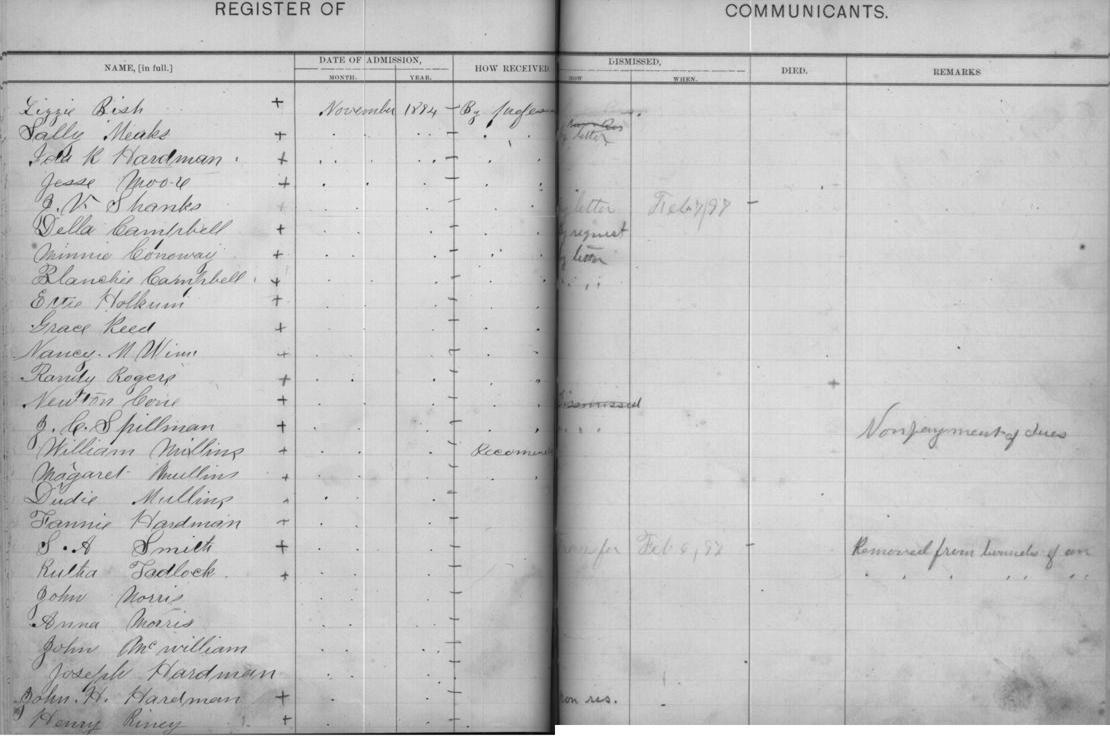 REGISTER OF COMMUNICANTS.
NAME, [in full.] DATE OF ADMISSION, HOW RECEIVED DISMISSED, DIED. REMARKS
MONTH. YEAR. HOW WHEN.
Lizzie Bish + November 1884 - By
Sally Meaks + letter
Ida K Hardman +
Jesse Moore +
J. V. Shanks + letter Feb 7/97 -
Della Campbell + request
Minnie Conoway + letter
Blanchie Campbell +
Holkum +
Grace Reed +
Nancy M Winn +
Randy Rogers +
Newton Cone + Dismissed
J. C. Spillman + Nonpayment of dues
William Mullins + Recomend
Magaret Mullins +
Dudie Mullins
Fannie Hardman
S. A Smith + Feb 6, 97 - Removed from of
Tadlock +
John Norris
Anna Morris
John McWilliam
Joseph Hardman
John. H. Hardman + non res.
Henry Riney +